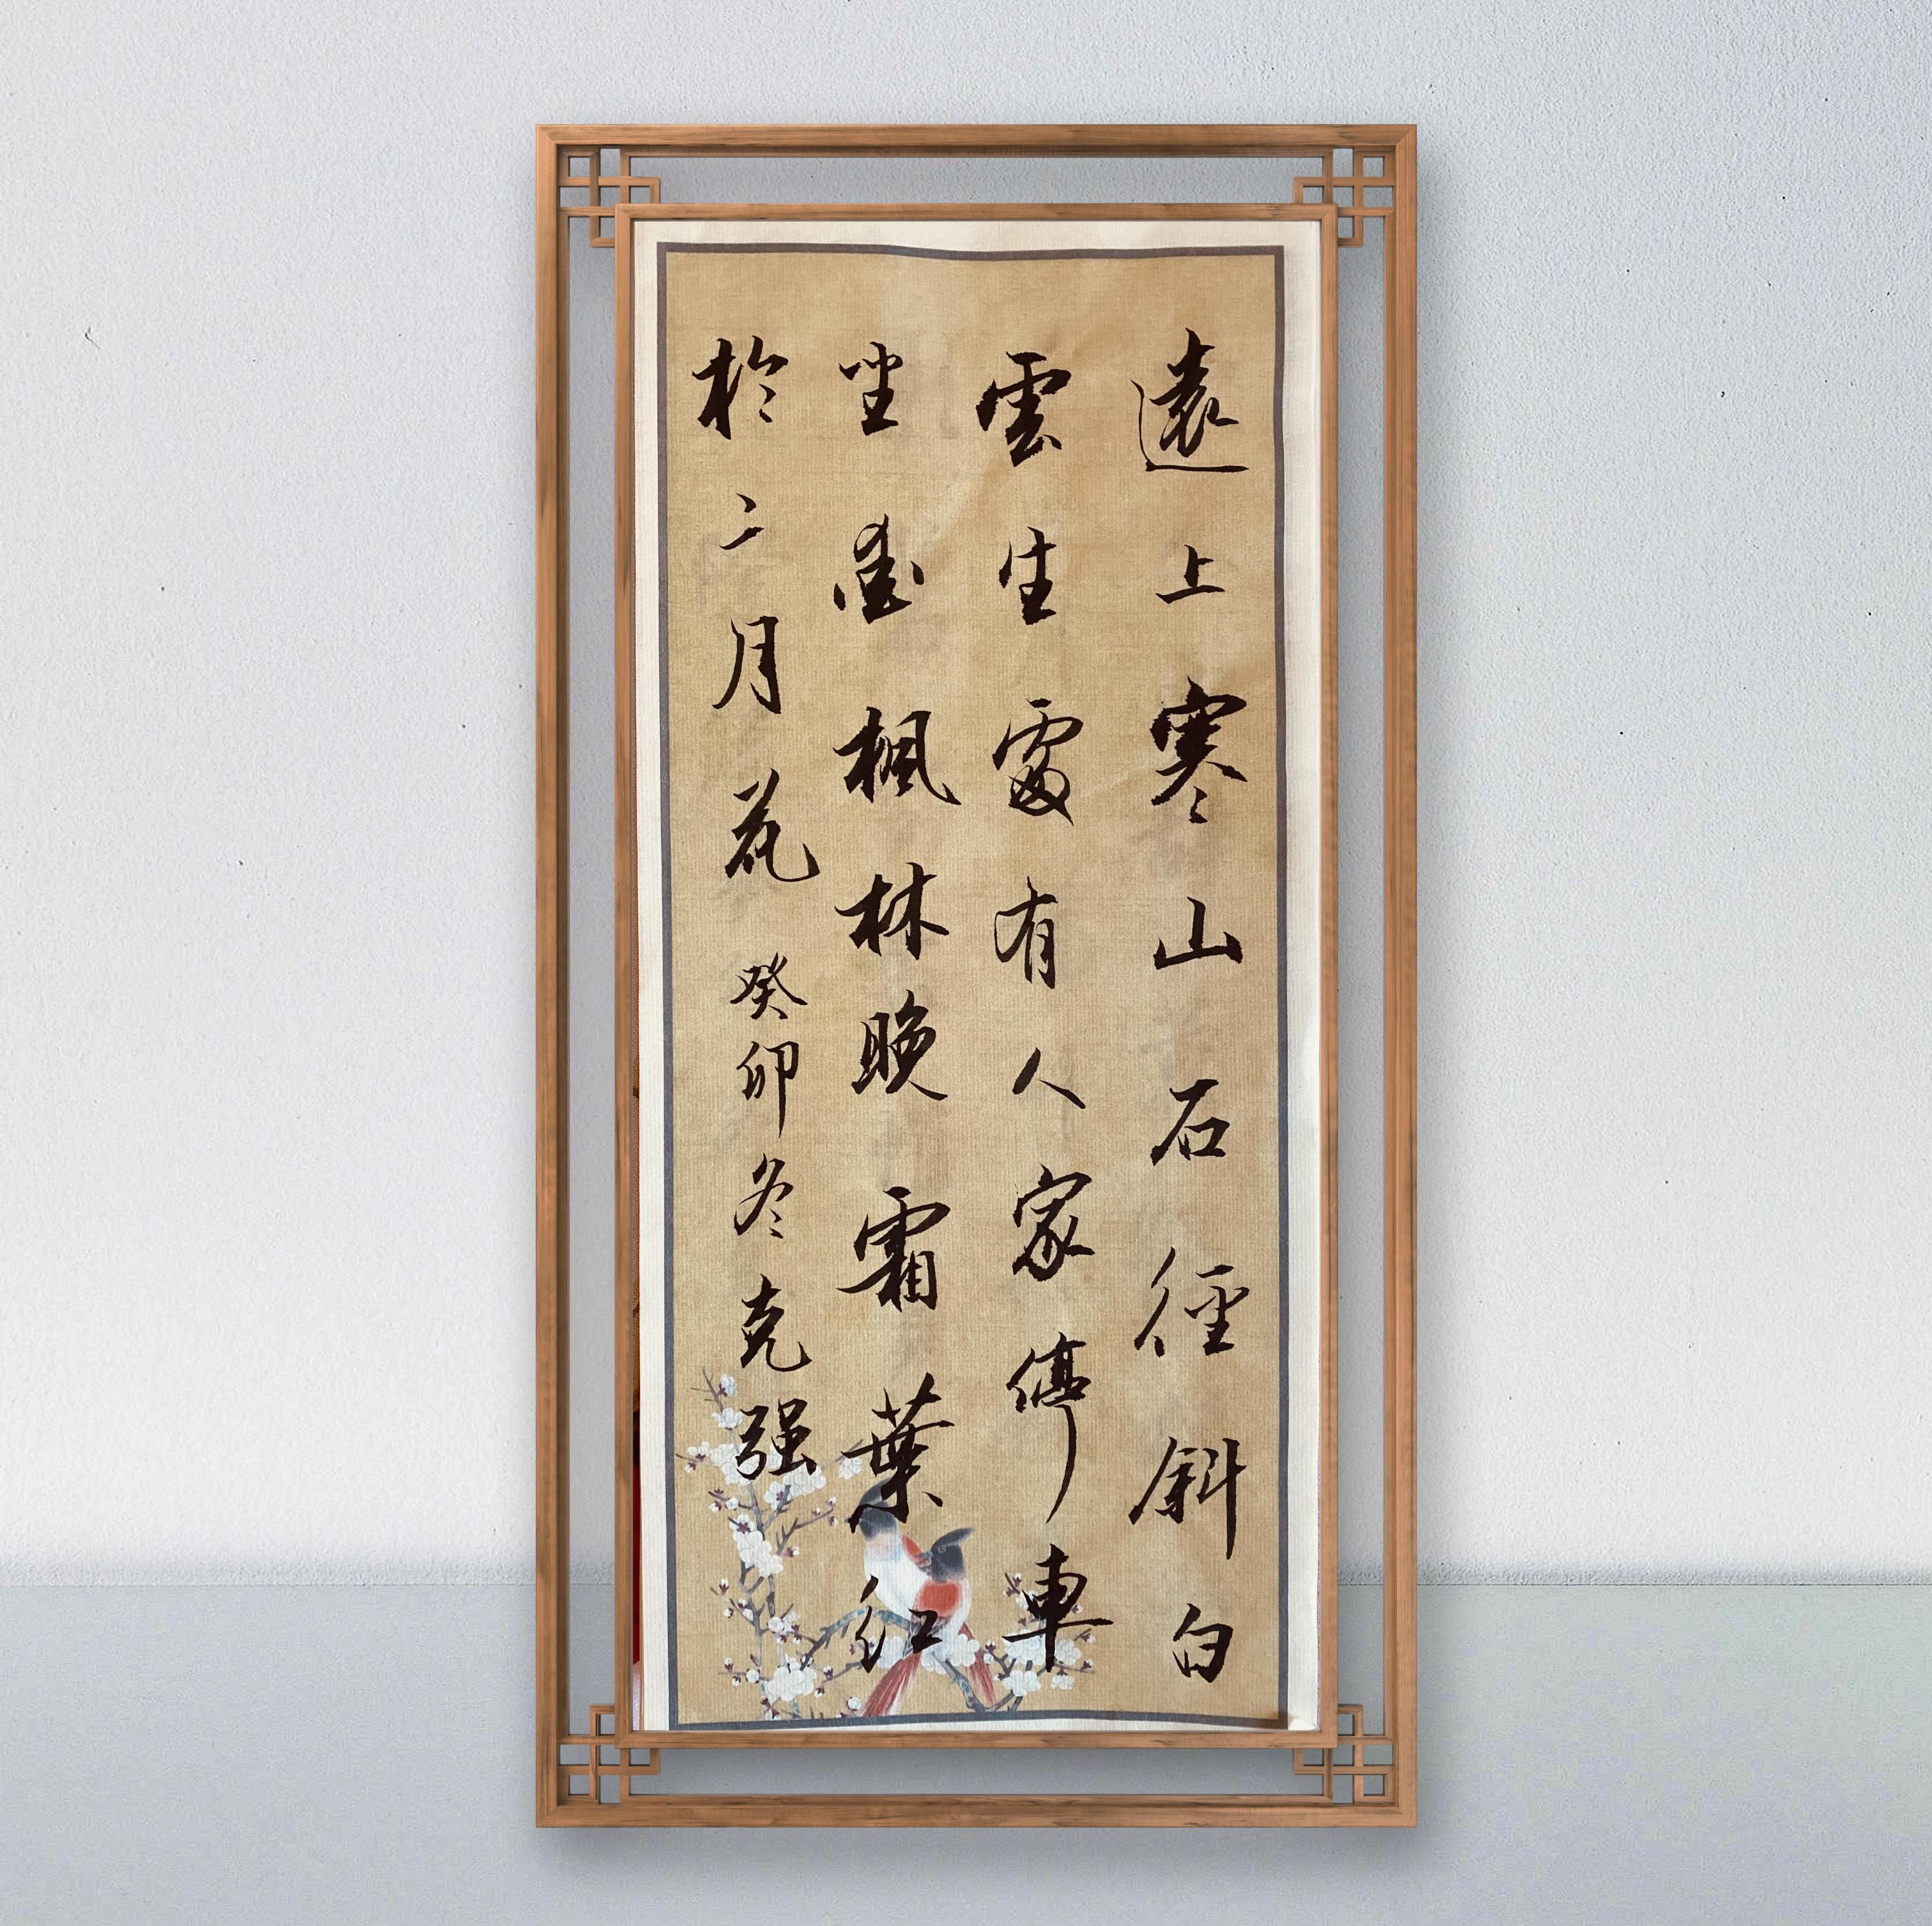 遠上寒山石徑斜白
雲生處有人家停車
坐愛楓林晚霜葉紅
於二月花癸卯冬克强